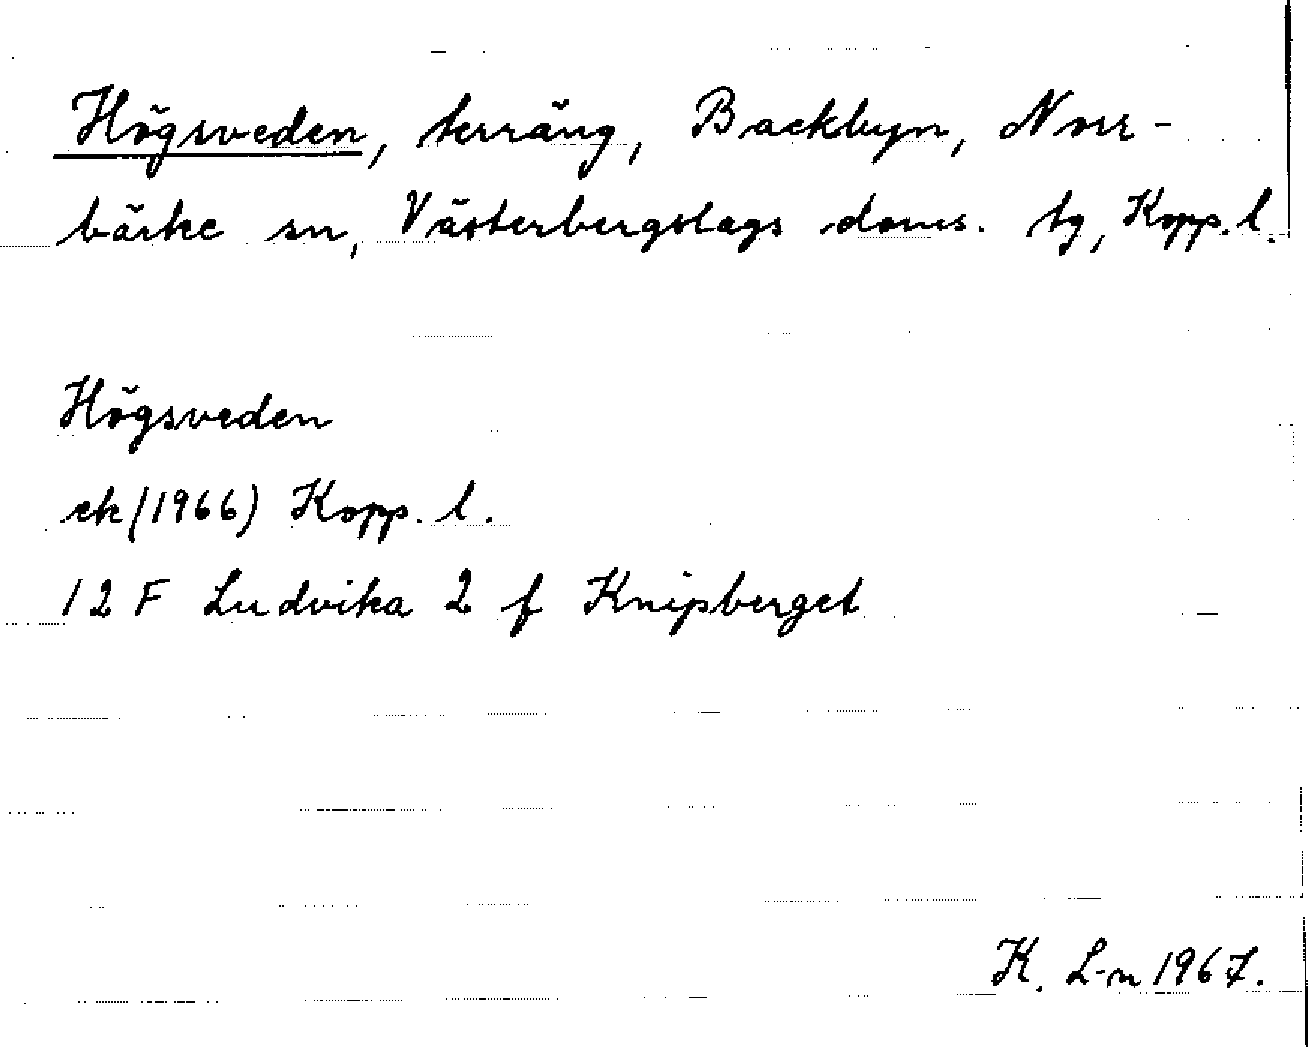 Högsveden, terräng, Backbyn, Norr-
bärke sn, Västerbergslags doms. tg, Kopp. l.
Högsveden
ek (1966) Kopp. l.
12 F Ludvika 2 f Knipberget
K. L-n 1967.